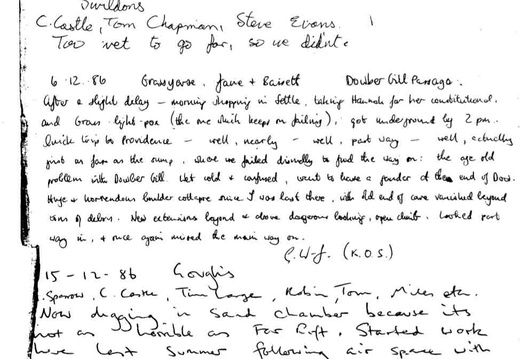 Swildons
C. Castle, Tom Chapman, Steve Evans. 1
Too wet to go far, so we didn't.
6.12.86 Grassyarse, Jane + Bassett Dowber Gill Passage.
After a slight delay – morning shopping in Settle, taking Hannah for her constitutional,
and Grass' light-pox (the one which keeps on failing), got underground by 2 pm.
Quick trip to Providence – well, nearly – well, part way – well, actually
just as far as the sump, where we failed dismally to find the way on: the age old
problem with Dowber Gill. Wet cold + confused, went to have a ponder at the end of Dow.
Huge + horrendous boulder collapse since I was last there, with old end of cave vanished beyond
tons of debris. New extensions beyond + above dangerous looking, open climb. Looked part
way in, + once again missed the main way on.
(K.O.S.)
15-12-86 Goughs
Sparrow, C. Castle, Tim Large, Robin, Tom, Miles etc.
Now digging in Sand chamber because its
not as horrible as Far Rift. Started work
here last summer following air space with